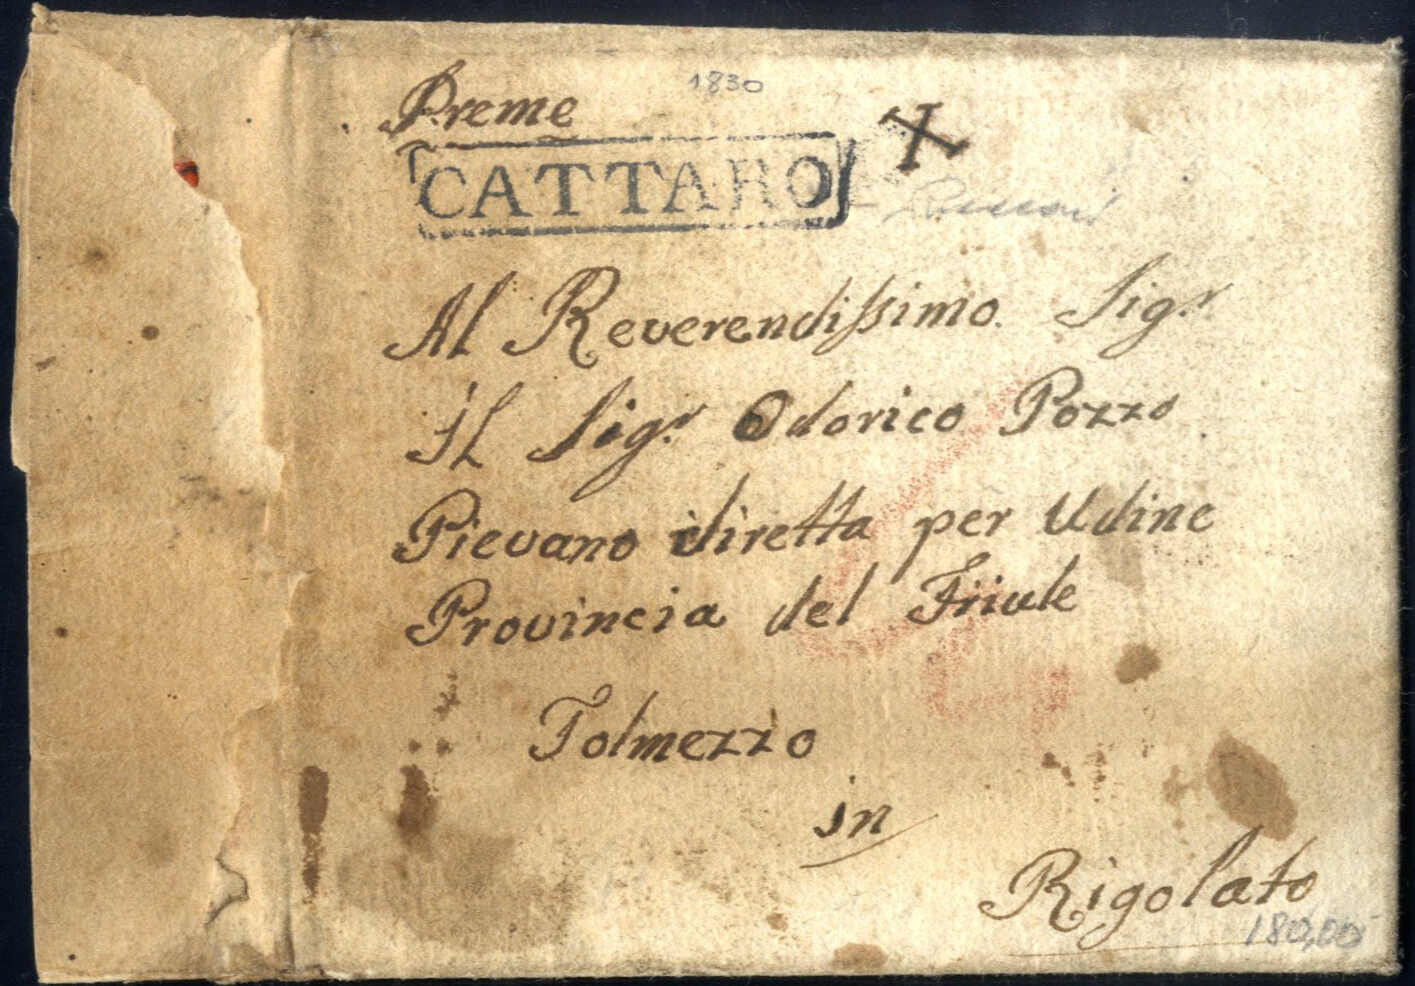 1830
Preme
CATTARO
Al Reverendissimo Sigr
Il Sigr Odorico Pozzo
Pievano diretta per Udine
Provincia del Friule
Tolmezzo
in
Rigolato
180,00